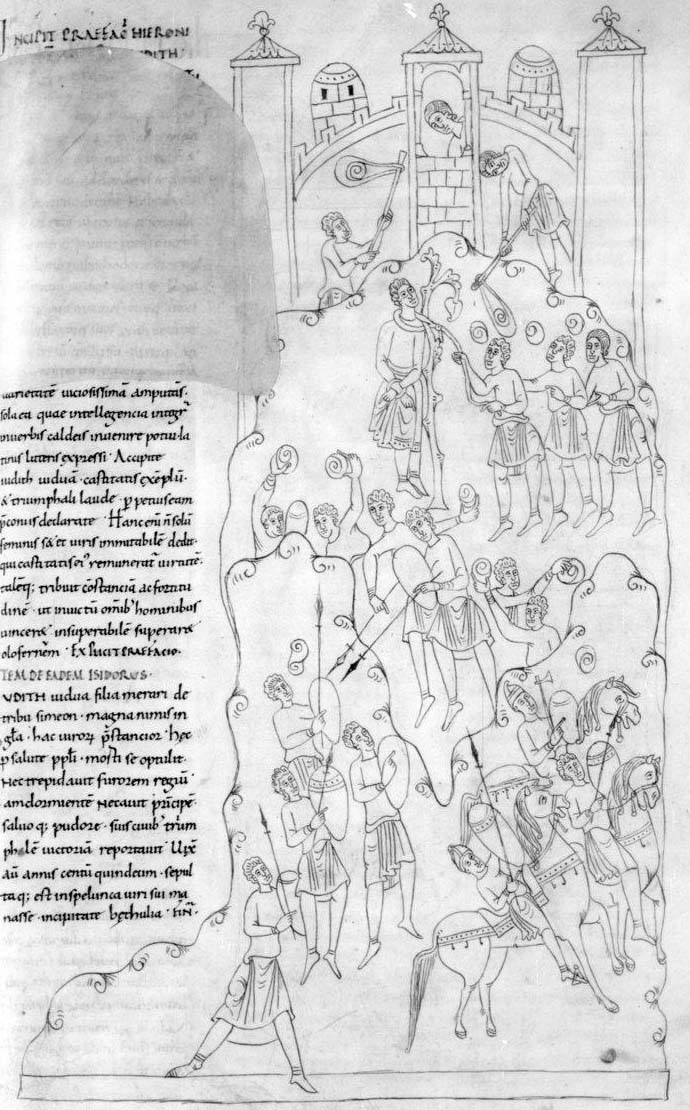 INCIPIT PRAEFAC̄ HIERONI
UDITH
varietatē viciosissimā amputavi.
sola ea quae intellegencia integr̄
in verbis caldeis invenire potui la
tinis litteris expressi. Accipite
iudith viduā. castitatis exēplū.
& triumphali laude. ꝑpetuis eam
p̄coniis declarate. Hanc eni n̄ solū
feminis s& et viris imitabilē dedit.
qui castitatis ei᷒ remunerat̄ virtutē
talēq; tribuit c̄ostanciā ac fortitu
dinē. ut invictū om̄ib᷒ hominibus
vincer&. insuperabilē superar&
olofernem. EXPLICIT PRAEFACIO.
ITEM DE EADEM ISIDORUS.
IUDITH vidua filia merari de
tribu simeon. magna nimis in
gła. hac viroꝝ p̄stancior. hęc
ꝓ salute ppłi. mosti se optulit.
Nec trepidavit furorem regiū.
am dormientē Necavit prīcipē.
salvo q; pudore. suis civib᷒ triūm
phalē victoriā reportavit. Vix̄
aū annis centū quindecim. sepul
ta q; est in spelunca viri sui ma
nasse. in civitate bethulia. FIN̄.